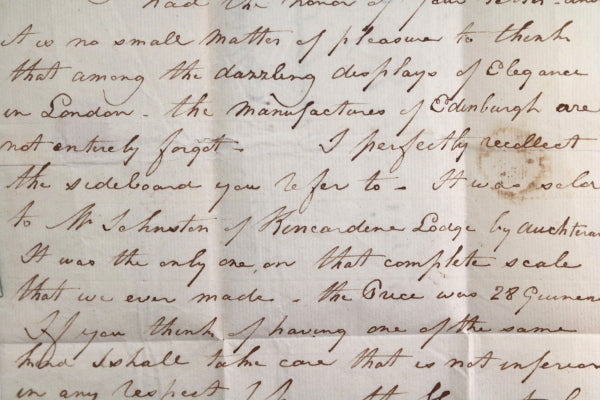 I had the honor of your letter and
it is no small matter of pleasure to think
that among the dazzling displays of Elegance
in London - the manufactures of Edinburgh are
not entirely forgot - I perfectly recollect
the sideboard you refer to - It was sold
to Mr Johnston of Kincardene Lodge by Auchterar
It was the only one, on that complete scale
that we ever made - the Price was 28 Guineas
If you think of having one of the same
kind I shall take care that is not inferior
in any respect I